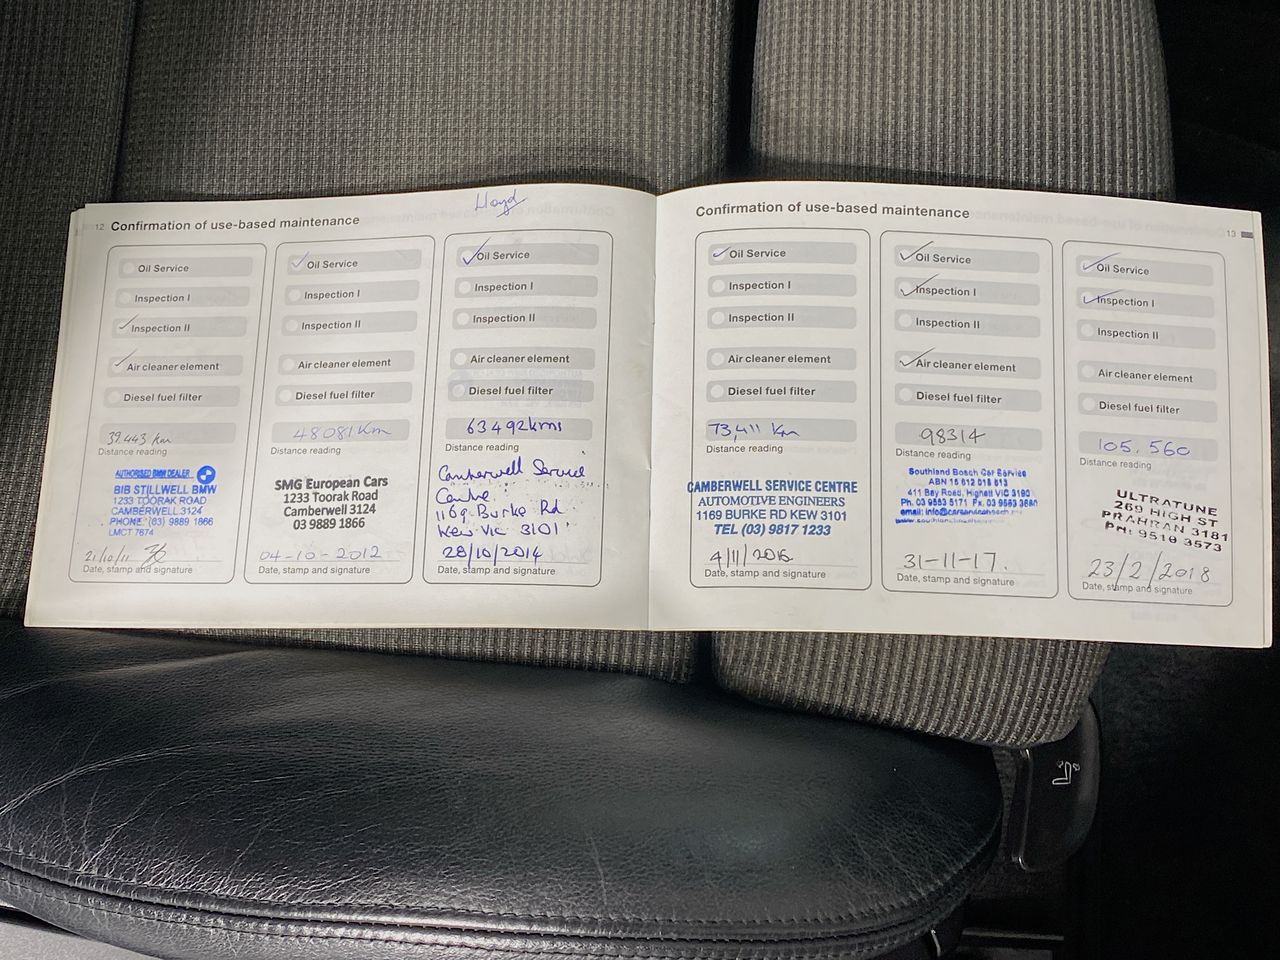 Lloyd
12 Confirmation of use-based maintenance
Oil Service
Inspection I
Inspection II
Air cleaner element
Diesel fuel filter
39.443 km
Distance reading
AUTHORISED BMW DEALER
BIB STILLWELL BMW
1233 TOORAK ROAD
CAMBERWELL 3124
PHONE: (03) 9889 1866
LMCT 7674
21/10/11
Date, stamp and signature
Oil Service
Inspection I
Inspection II
Air cleaner element
Diesel fuel filter
48081 Km
Distance reading
SMG European Cars
1233 Toorak Road
Camberwell 3124
03 9889 1866
04-10-2012
Date, stamp and signature
Oil Service
Inspection I
Inspection II
Air cleaner element
Diesel fuel filter
63492kms
Distance reading
Camberwell Service
Centre
1169 Burke Rd
Kew Vic 3101
28/10/2014
Date, stamp and signature
Confirmation of use-based maintenance
13
Oil Service
Inspection I
Inspection II
Air cleaner element
Diesel fuel filter
73,411 Km
Distance reading
CAMBERWELL SERVICE CENTRE
AUTOMOTIVE ENGINEERS
1169 BURKE RD KEW 3101
TEL (03) 9817 1233
4/11/2016
Date, stamp and signature
Oil Service
Inspection I
Inspection II
Air cleaner element
Diesel fuel filter
98314
Distance reading
Southland Bosch Car Service
ABN 15 612 018 613
411 Bay Road, Highett VIC 3190
Ph. 03 9553 5171 Fx. 03 9553
email:
31-11-17.
Date, stamp and signature
Oil Service
Inspection I
Inspection II
Air cleaner element
Diesel fuel filter
105,560
Distance reading
ULTRATUNE
269 HIGH ST
PRAHRAN 3181
PH: 9510 3573
23/2/2018
Date, stamp and signature